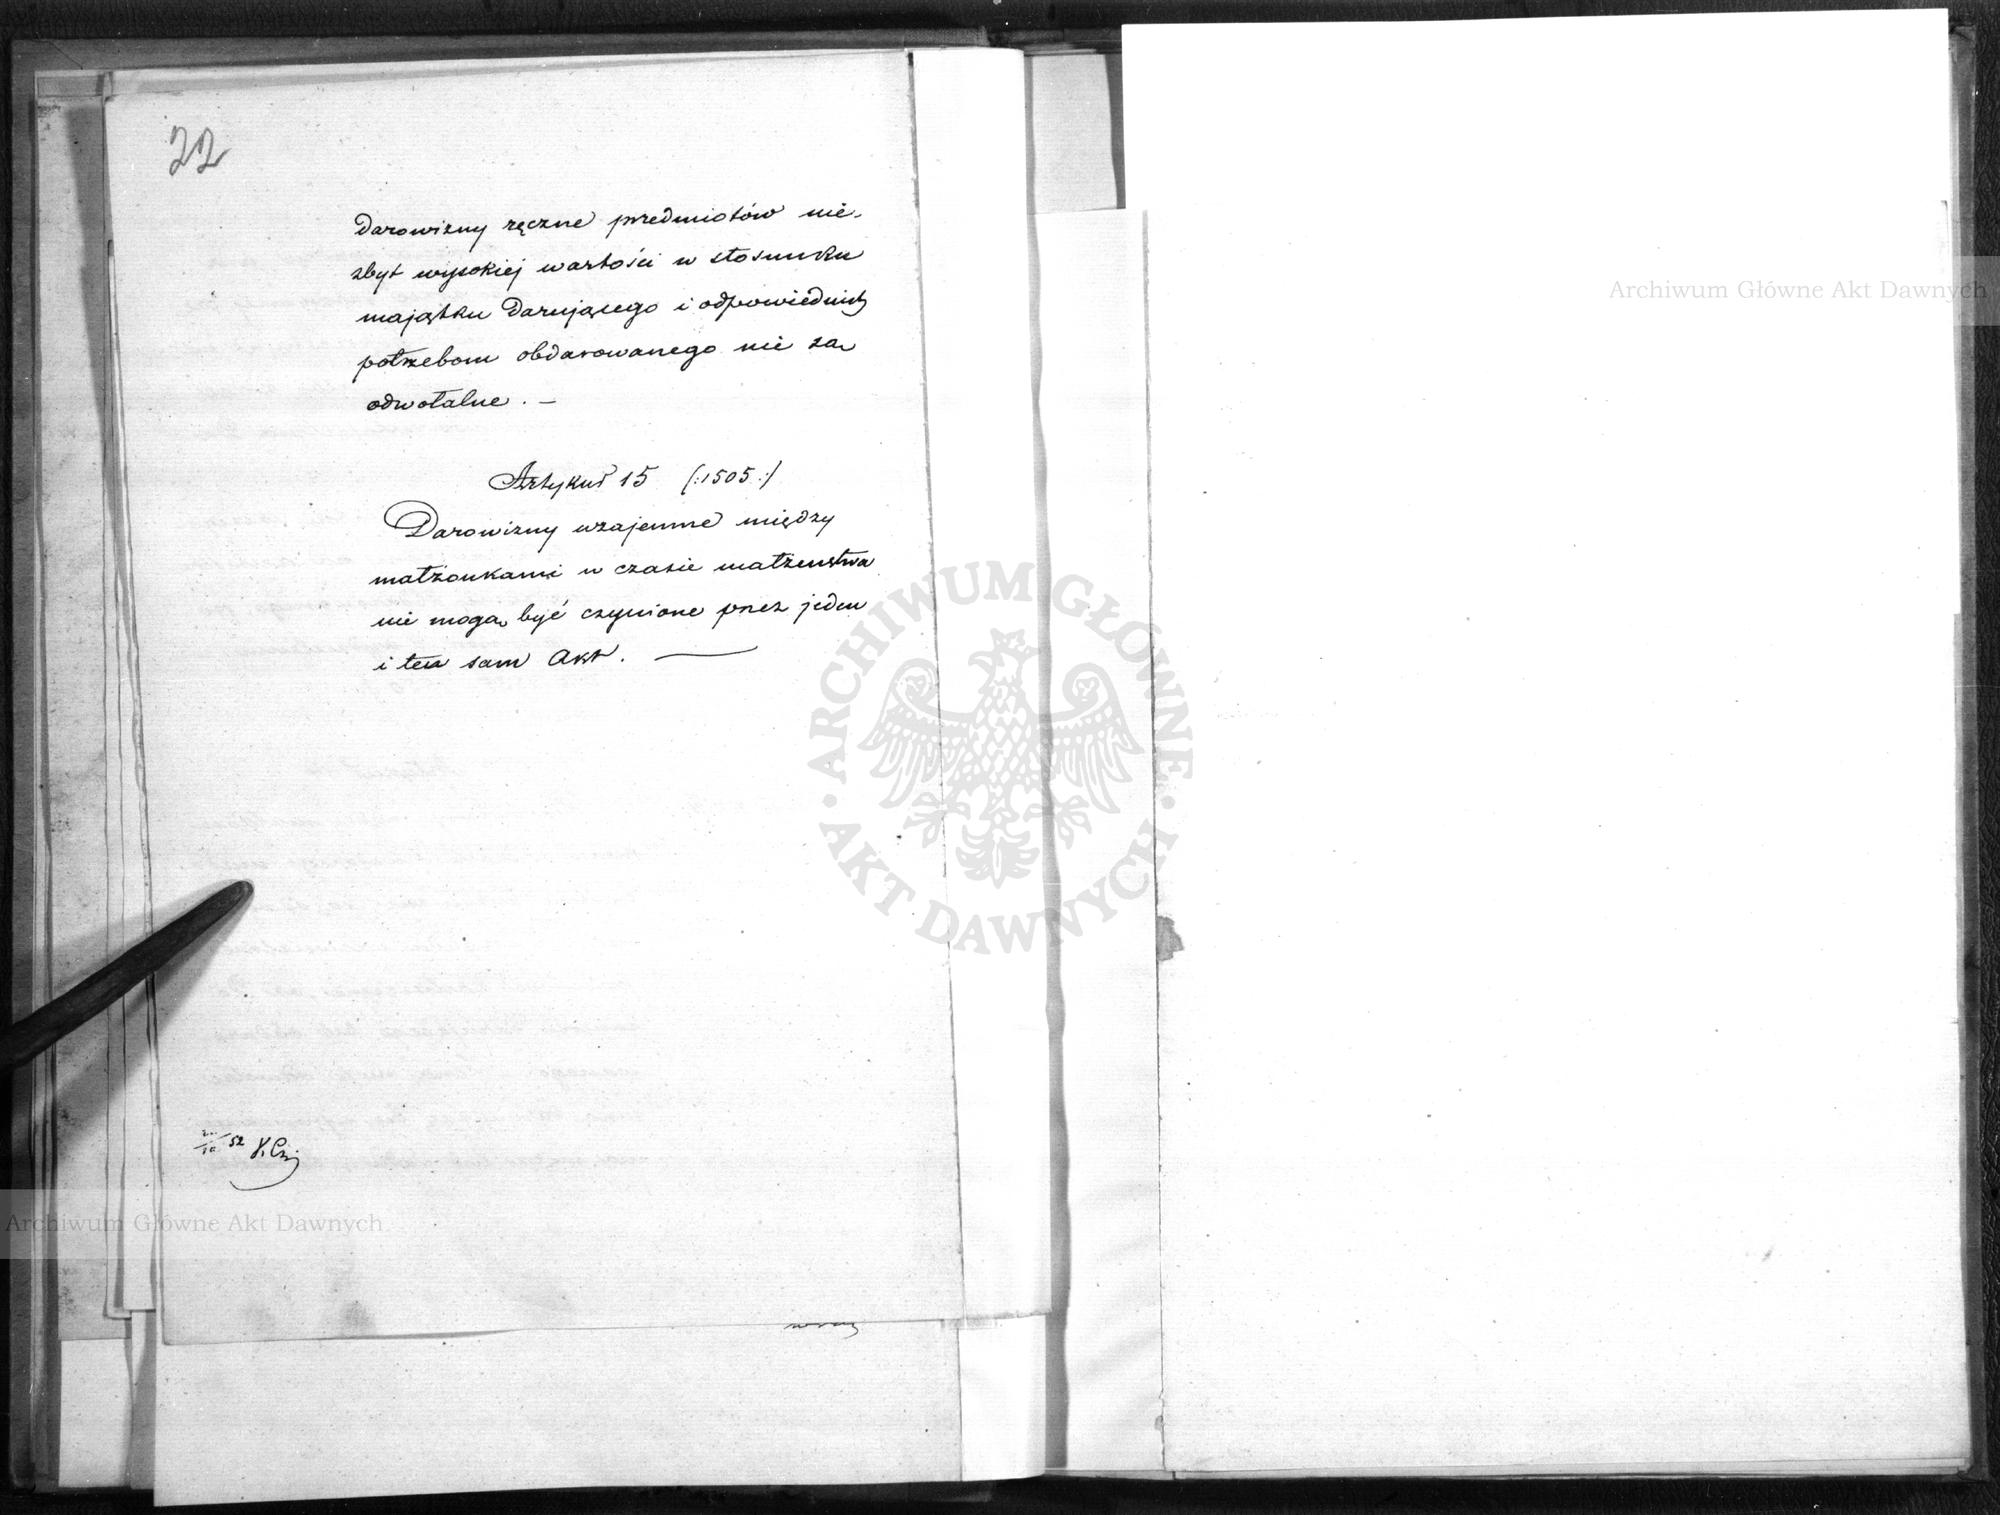 22
Darowizny ręczne predmiotów nie-
zbyt wysokiej wartości w stosunku
majątku Darującego i odpowiednich
potrzebom obdarowanego nie są
odwołalne. —
Artykuł 15 (:1505:)
Darowizny wzajemne między
małżonkami w czasie małżeństwa
nie mogą być czynione przez jeden
i ten sam Akt. —
52
Archiwum Główne Akt Dawnych
Archiwum Główne Akt Dawnych
ARCHIWUM GŁÓWNE
AKT DAWNYCH